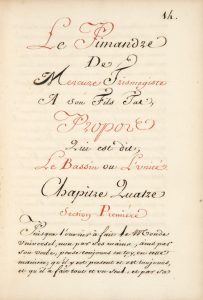 14.
Le Pimandre
De
Mercure Trismegiste
A son Fils Tat,
Propos
Qui est dit,
Le Bassin ou L'unité
Chapitre Quatre
Section Premiere
Puisque l'ouvrier à fait le Monde
universel, non par ses mains, mais par
son verbe, pense toujours
qu'il est present et est toujours,
et qu'il à fait tout et un seul, et par sa